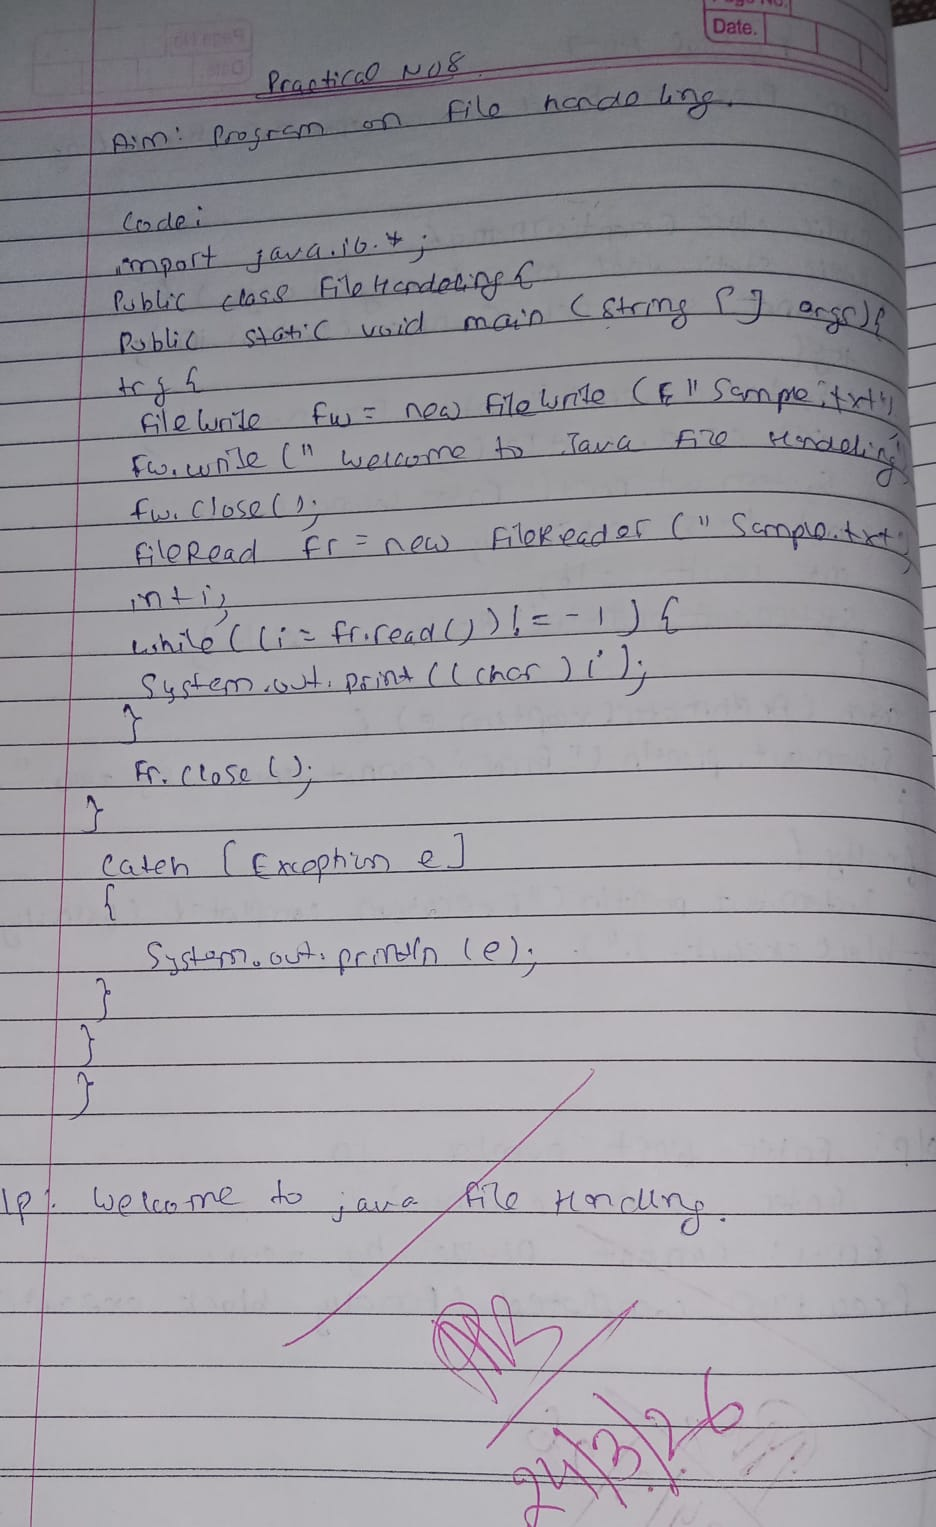 Page No.
Date.
Practical No8.
Aim: Program on File handoling.
Code:
import java.io.*;
Public class FileHandeling {
Public static void main (String [] args) {
try {
FileWrite fw = new FileWrite ( "Sample.txt");
Fw.write (" Welcome to Java File Handeling
fw. close ();
FileRead fr = new FileReader (" Sample.txt
int i;
while ((i = fr.read ()) != -1) {
System.out. print ((char) i );
}
Fr. close ();
}
Catch [Exception e]
{
System.out. println (e);
}
}
}
lp: Welcome to java file Handling.
24/3/26